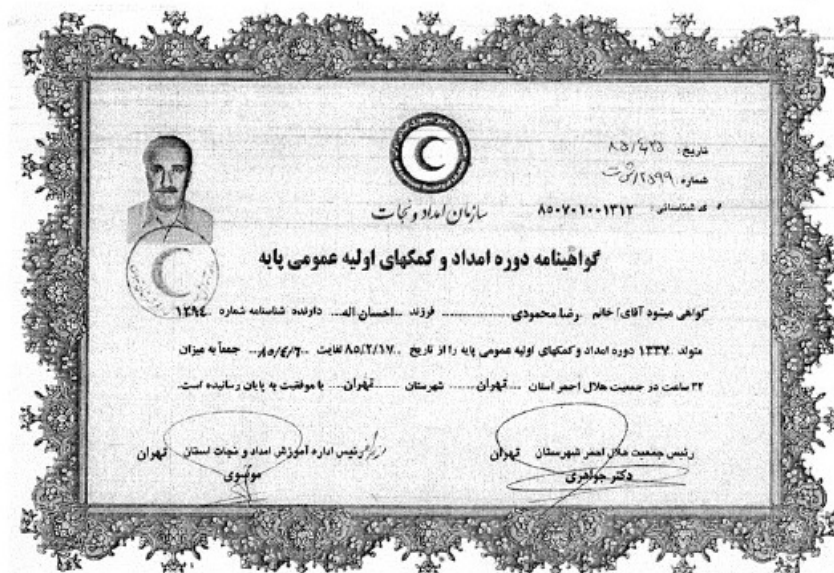 تاریخ: ۸۵/۴/۲۵
شماره: ۱۲۵۹۹/
کد شناسائی: ۸۵۰۷۰۱۰۰۱۳۱۲
سازمان امداد و نجات
گواهینامه دوره امداد و کمکهای اولیه عمومی پایه
گواهی میشود آقای/ خانم ..رضا محمودی............ فرزند ...احسان اله... دارنده شناسنامه شماره ..۱۲۹۴
متولد ..۱۳۳۷ دوره امداد و کمکهای اولیه عمومی پایه را از تاریخ ..۸۵/۲/۱۷ لغایت ..۸۵/۴/۶... جمعاً به میزان
۳۲ ساعت در جمعیت هلال احمر استان ....تهران...... شهرستان ......تهران.... با موفقیت به پایان رسانیده است.
رئیس جمعیت هلال احمر شهرستان تهران
دکتر جواهری
رئیس اداره آموزش امداد و نجات استان تهران
موسوی